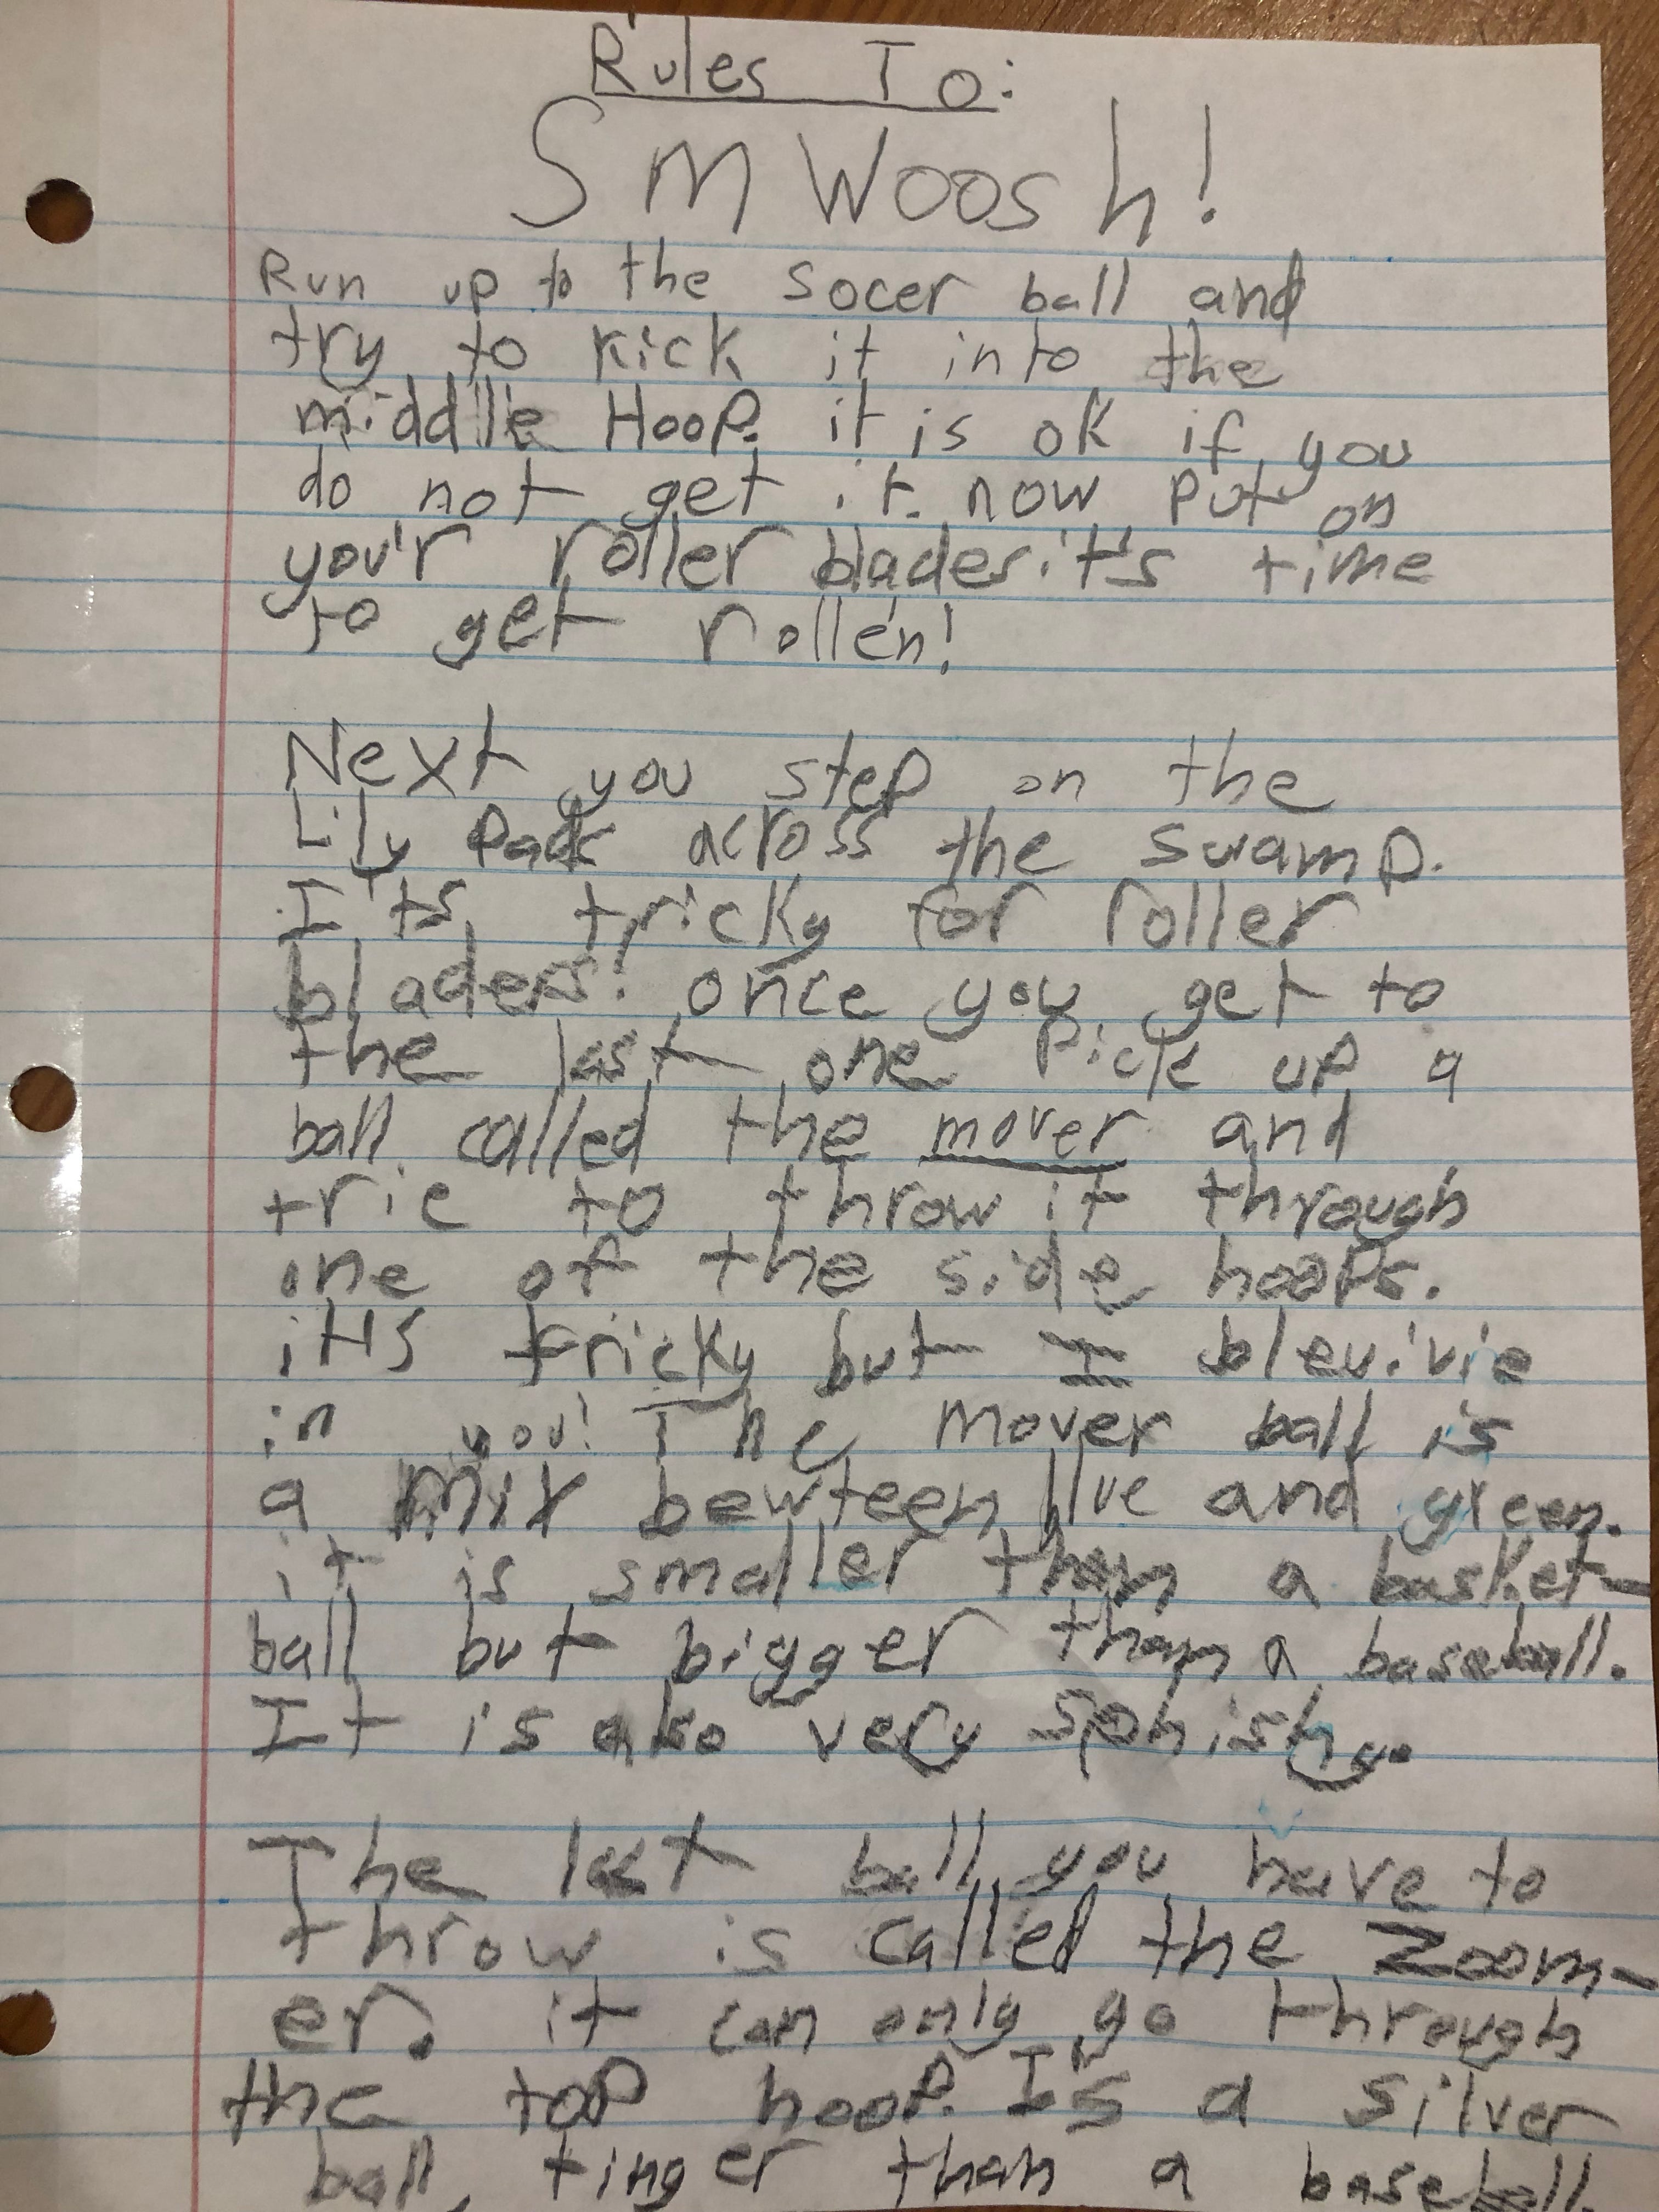 Rules To:
SmWoosh!
Run up to the socer ball and
try to kick it into the
middle Hoop. it is ok if you
do not get it. now put on
you'r roller blades. it's time
to get rollen!
Next you step on the
Lily Pads across the swamp.
It's tricky for roller
bladers! once you get to
the last one Pick up a
ball called the mover and
trie to throw it through
one of the side hoops.
it's tricky but I bleuivie
in you! The mover ball is
a mix bewteen blue and green.
it is smaller than a basket-
ball but bigger than a baseball.
It is also very sphishy.
The last ball you have to
throw is called the Zoom-
er. it can only go through
the top hoop. I's a silver
ball, tinger than a baseball